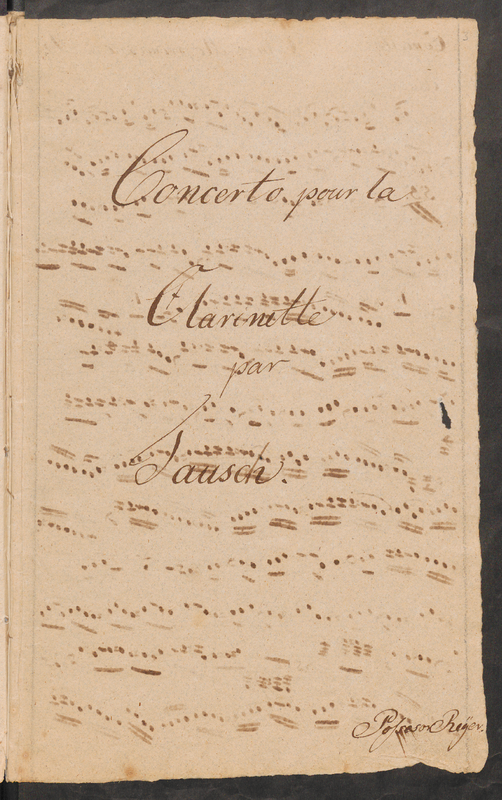 Concerto pour la
Clarinette
par
Tausch.